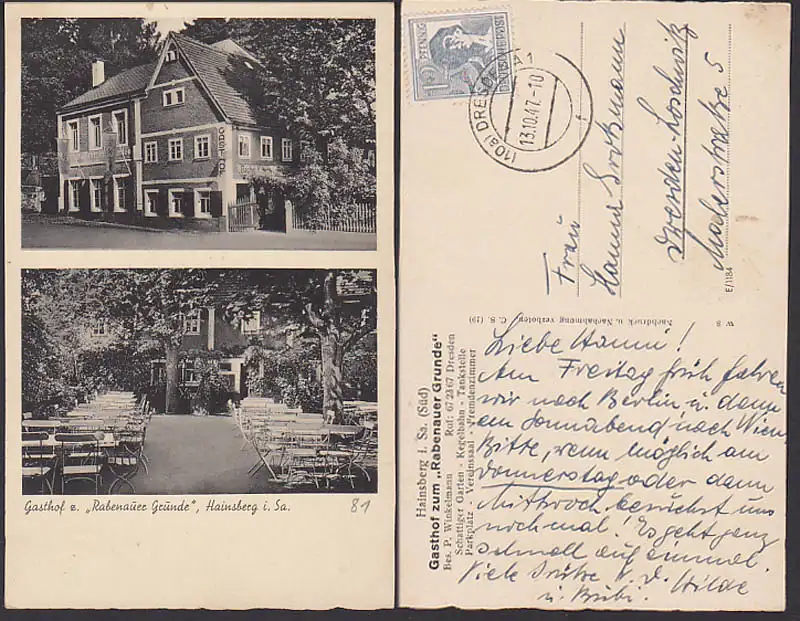 GASTHOF
Gasthof z. „Rabenauer Grunde", Hainsberg i. Sa.
81
12 PFENNIG
DEUTSCHE POST
(10a) DRESDEN A 1
13.10.47.-10
Frau
Hanna
Dresden-Loschwitz
Malerstraße 5
E/1184
W 8 Nachdruck u. Nachahmung verboten C. S. (19)
Hainsberg i. Sa. (Süd)
Gasthof zum „Rabenauer Grunde"
Bes. P. Winkelmann Ruf: 672367 Dresden
Schattiger Garten - Kegelbahn - Tankstelle
Parkplatz - Vereinssaal - Fremdenzimmer
Liebe Hanni!
Am Freitag früh fahren
wir nach Berlin u. dann
am Sonnabend nach Wien.
Bitte, wenn möglich am
Donnerstag oder dann
Mittwoch besuchst uns
noch mal! Es geht ganz
schnell auf einmal.
Viele Grüße v. d. Hilde
u. Bubi.